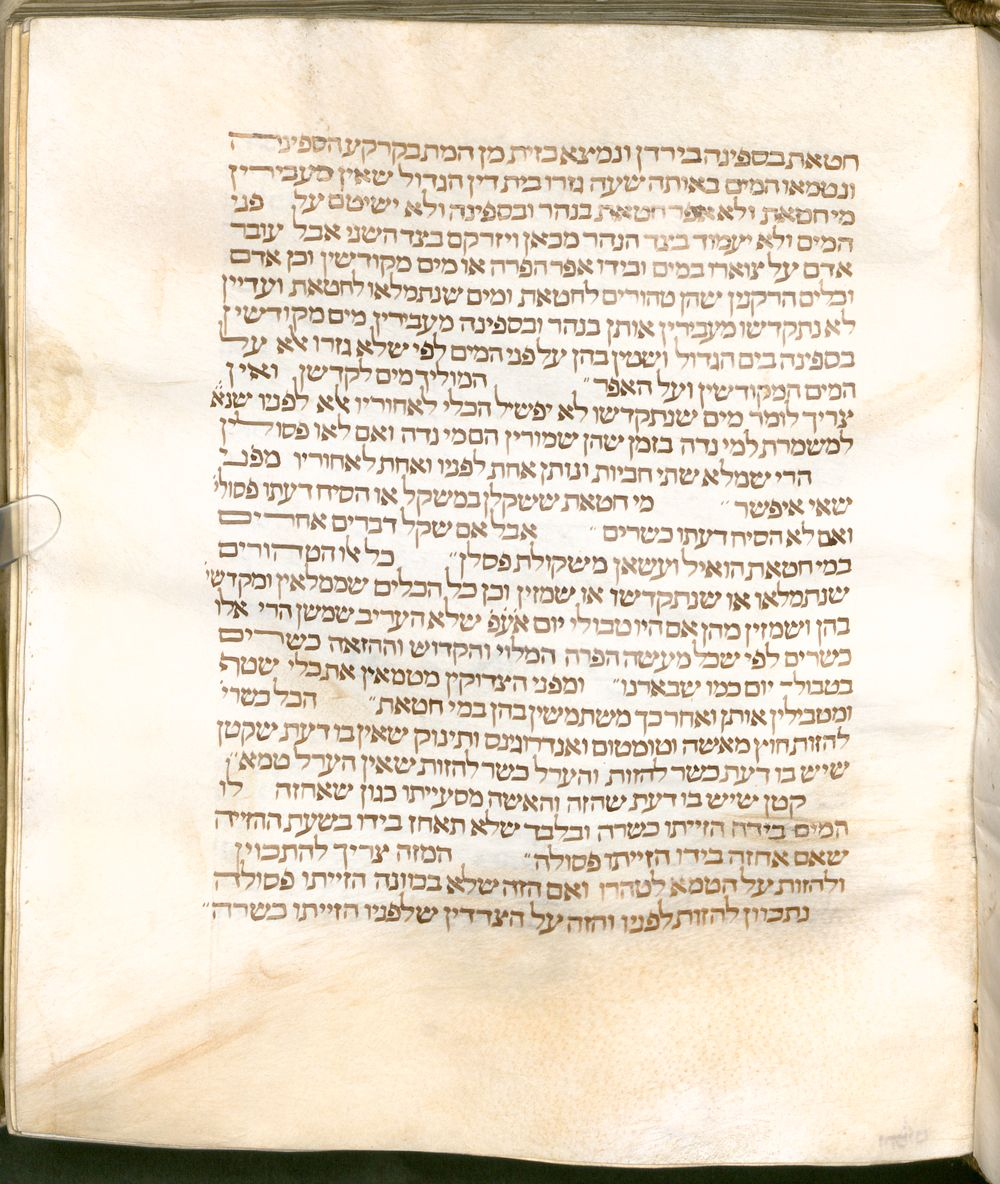 חטאת בספינה בירדן ונמצא כזית מן המת בקרקע הספינה
ונטמאו המים באותה שעה גזרו בית דין הגדול שאין מעבירין
מי חטאת ולא אפר חטאת בנהר ובספינה ולא ישיטם על פני
המים ולא יעמוד בצד הנהר מכאן ויזרקם בצד השני אבל עובר
אדם על צוארו במים ובידו אפר הפרה או מים מקודשין וכן אדם
וכלים הרקנין שהן טהורים לחטאת ומים שנתמלאו לחטאת ועדיין
לא נתקדשו מעבירין אותן בנהר ובספינה מעבירין מים מקודשין
בספינה בים הגדול ושטין בהן על פני המים לפי שלא גזרו אלא על
המים המקודשין ועל האפר״ המוליך מים לקדשן ואין
צריך לומר מים שנתקדשו לא יפשיל הכלי לאחוריו אלא לפניו שנא׳
למשמרת למי נדה בזמן שהן שמורין הם מי נדה ואם לאו פסולין
הרי שמלא שתי חביות ונותן אחת לפניו ואחת לאחוריו מפני
שאי איפשר״ מי חטאת ששקלן במשקל או הסיח דעתו פסולי׳
ואם לא הסיח דעתו כשרים״ אבל אם שקל דברים אחרים
במי חטאת הואיל ועשאן משקולת פסלן״ כל אלו הטהורים
שנתמלאו או שנתקדשו או שמזין וכן כל הכלים שממלאין ומקדשי׳
בהן ושמזין מהן אם היו טבולי יום אע״פ שלא העריב שמשן הרי אלו
כשרים לפי שכל מעשה הפרה המלוי והקדוש וההזאה כשרים
בטבול יום כמו שבארנו״ ומפני הצדוקין מטמאין את כלי שטח
ומטבילין אותן ואחר כך משתמשין בהן במי חטאת״ הכל כשרי׳
להזות חוץ מאשה וטומטום ואנדרוגינס ותינוק שאין בו דעת שקטן
שיש בו דעת כשר להזות והערל כשר להזות שאין הערל טמא״
קטן שיש בו דעת שהזה והאשה מסעייתו כגון שאחזה לו
המים בידה הזייתו כשרה ובלבד שלא תאחז בידו בשעת ההזייה
שאם אחזה בידו הזייתו פסולה״ המזה צריך להתכוין
ולהזות על הטמא לטהרו ואם הזה שלא בכוונה הזייתו פסולה
נתכוון להזות לפניו והזה על הצדדין שלפניו הזייתו כשרה״